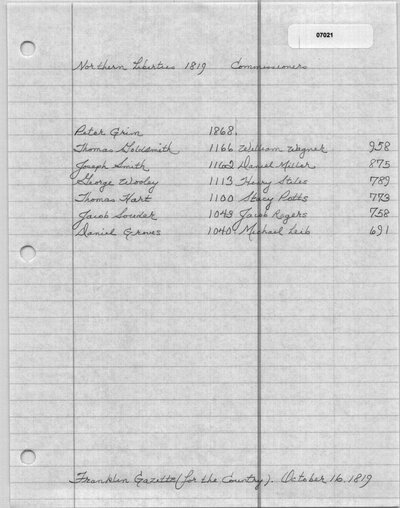 07021
Northern Liberties 1819 Commissioners
Peter Grim 1868
Thomas Goldsmith 1166 William Wagner 958
Joseph Smith 1162 Daniel Miller 875
George Wooley 1113 Henry Stiles 789
Thomas Hart 1100 Stacy Potts 773
Jacob Souder 1043 Jacob Rogers 758
Daniel Groves 1040 Michael Leib 691
Franklin Gazette (for the Country). October 16, 1819